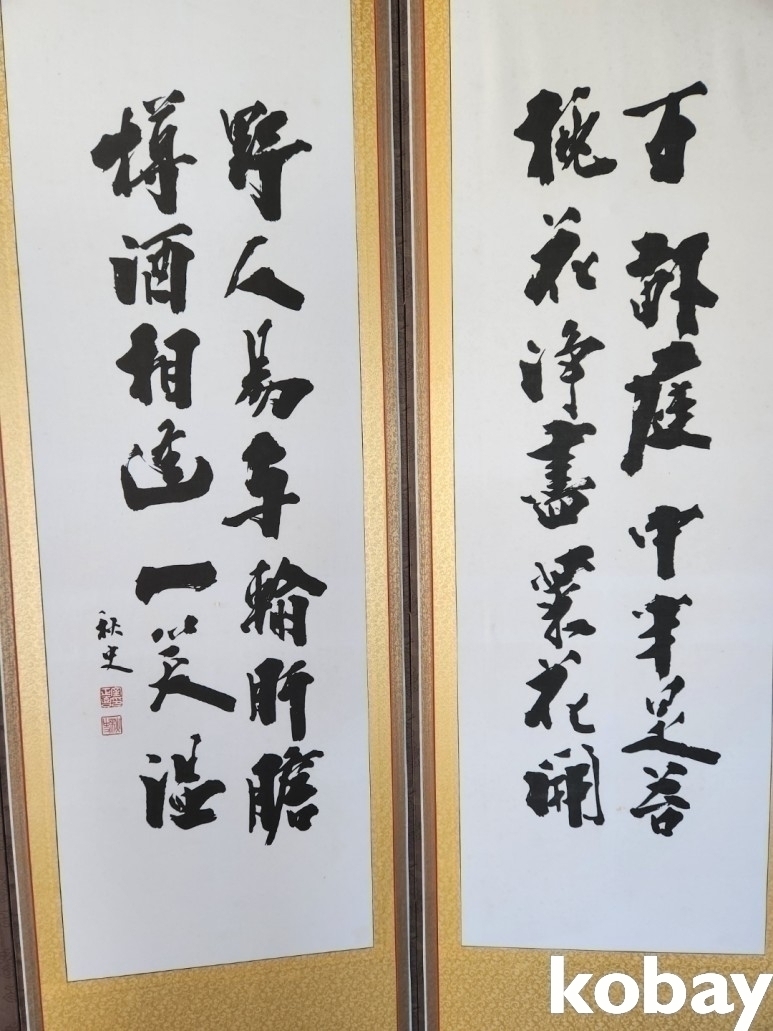 百畝庭中半是苔
桃花淨盡菜花開
野人易與輸肝膽
樽酒相逢一笑溫
秋史
kobay